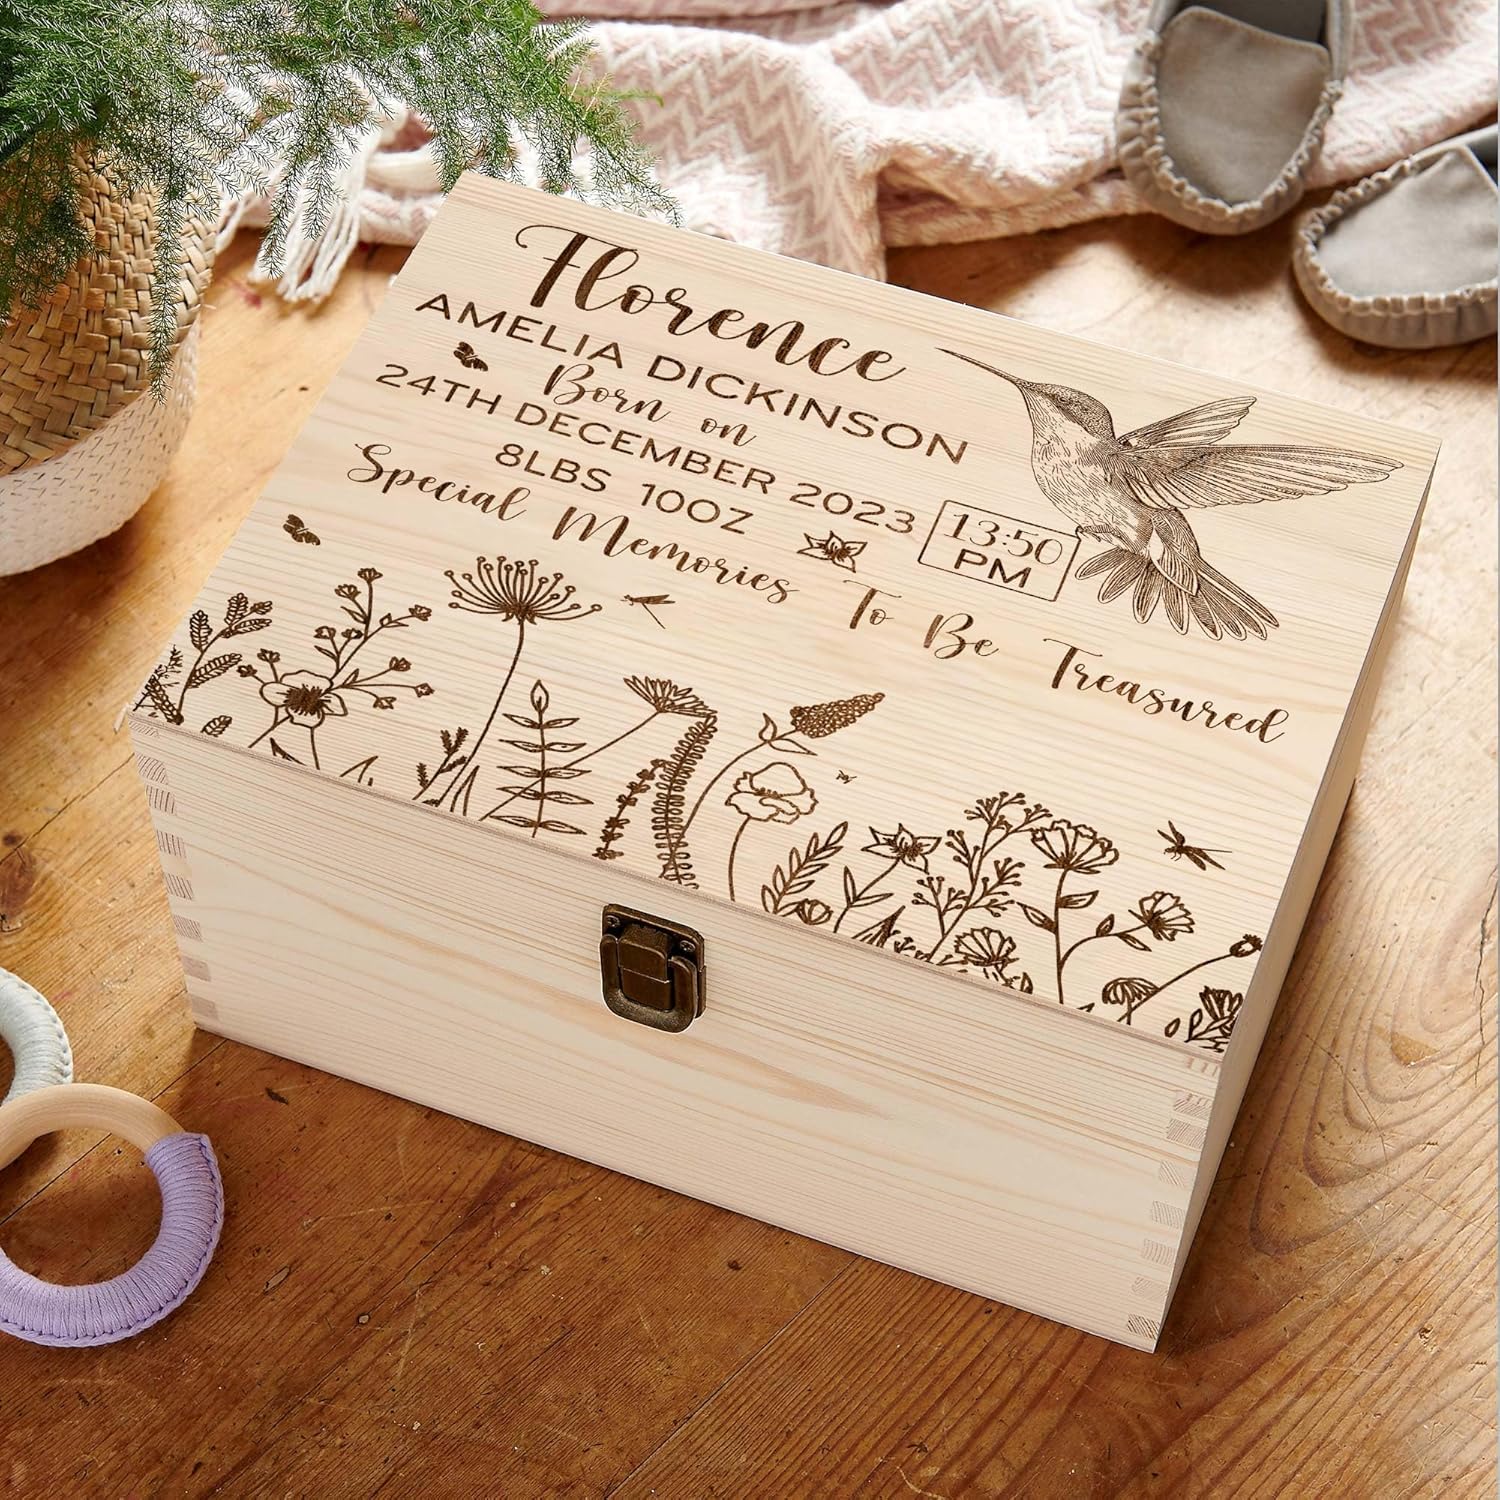 Florence
AMELIA DICKINSON
Born on
24TH DECEMBER 2023
8LBS 10OZ
13:50
PM
Special Memories To Be Treasured